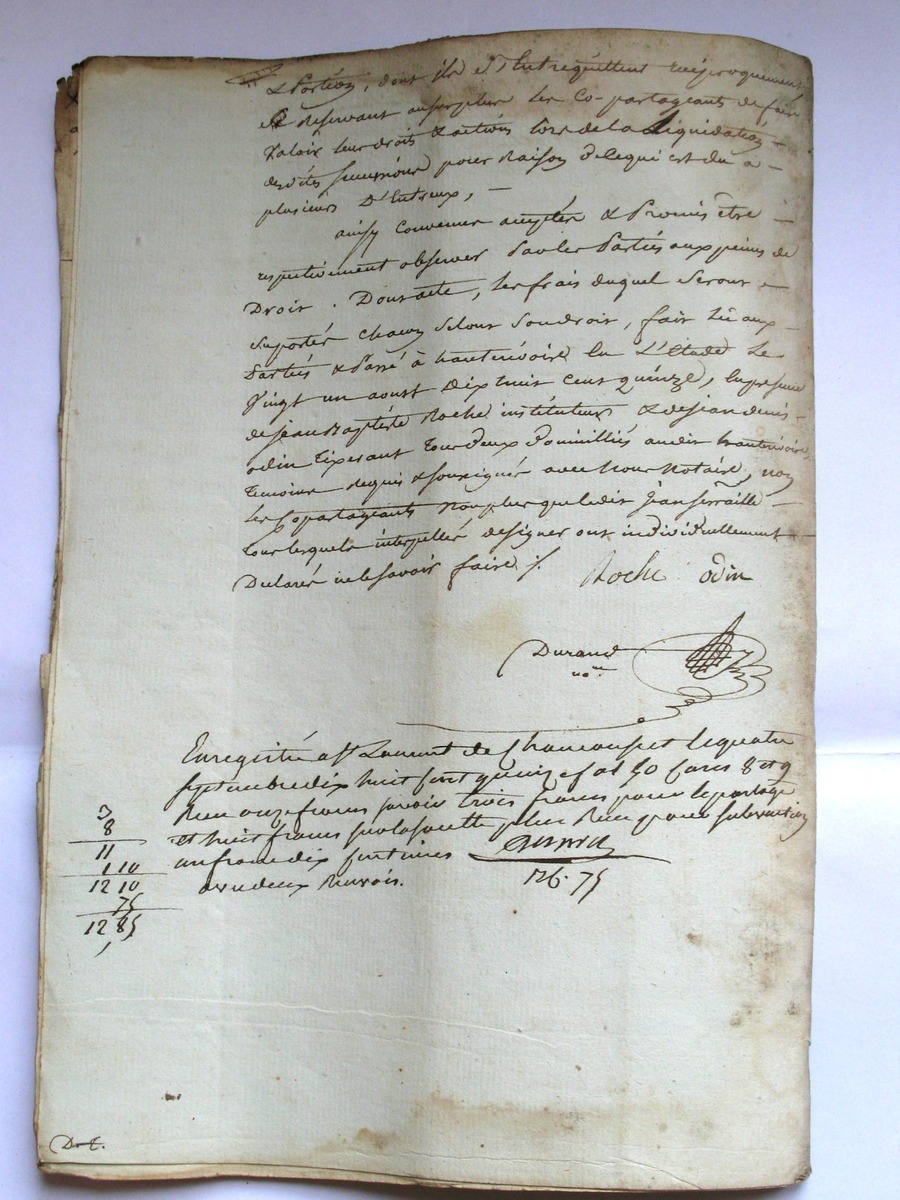 & Portion, dont ils s'entrequittent reciproquement
se Reservant au surplus les Co-partageants de faire
valoir leur droits & actions lors de la Liquidation
desd.tes successions pour Raison de ce qui est du a
plusieurs D'Entreux, —
ainsy convenu accepté & Promis être
respectivement observer Par les Parties aux peines de
Droit. Dont acte, les frais duquel seront
suportés chacun selont son droit, fait Lû aux
Parties & Passé à hauterivoire En L'Etude Le
Vingt un aoust Dix huit cent quinze, En presence
de jean Baptiste Roche instituteur & de jean denis
odin Tixerant Tous deux Domicilliés audit hauterivoire,
Temoins Requis & soussignés avec Nous Notaire, non
les Copartageants Non plus que ledit jean
tous lesquels interpellés de signer ont individuellement
Declarer ne le savoir faire ./. Roche odin
Durand
no.re
Enregistré a St Laurent de Chamousset le quatre
septembre dix huit cent quinze f. 50 cases 8 et 9
Recu onze francs savoir trois francs pour le partage
et huit francs pour la soulte plus Recu pour subvention
un franc dix centimes
ou deux Renvois.
126.75
3
8
11
1 10
12 10
75
12 85
D.t.